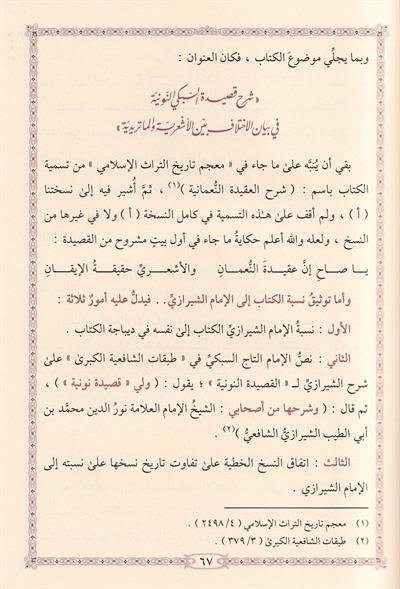 وبما يجلِّي موضوعَ الكتاب ، فكان العنوان :
« شرح قصيدة السبكي النونية
في بيان الاختلاف بين الأشعرية والماتريدية »
بقي أن يُنبَّه علىٰ ما جاء في « معجم تاريخ التراث الإسلامي » من تسمية
الكتاب باسم : ( شرح العقيدة النُّعمانية )(١) ، ثمَّ أُشير فيه إلىٰ نسختنا
( أ ) ، ولم أقف علىٰ هـٰذه التسمية في كامل النسخة ( أ ) ولا في غيرها من
النسخ ، ولعله والله أعلم حكايةُ ما جاء في أول بيتٍ مشروح من القصيدة :
يـا صـاحِ إنَّ عقيـدةَ النُّعمـان والأشعـريِّ حقيقـةُ الإيقـانِ
وأما توثيقُ نسبة الكتاب إلى الإمام الشيرازيِّ . . فيدلُّ عليه أمورٌ ثلاثة :
الأول : نسبةُ الإمام الشيرازيِّ الكتاب إلىٰ نفسه في ديباجة الكتاب .
الثاني : نصُّ الإمام التاج السبكيِّ في « طبقات الشافعية الكبرىٰ » علىٰ
شرح الشيرازيِّ لـ « القصيدة النونية » ؛ يقول : ( ولي « قصيدة نونية » ) ،
ثم قال : ( وشرحها من أصحابي : الشيخُ الإمام العلامة نورُ الدين محمَّد بن
أبي الطيب الشيرازيُّ الشافعيُّ )(٢) .
الثالث : اتفاق النسخ الخطية علىٰ تفاوت تاريخ نسخها علىٰ نسبته إلى
الإمام الشيرازي .
(١) معجم تاريخ التراث الإسلامي ( ٢٤٩٨/٤ ) .
(٢) طبقات الشافعية الكبرىٰ ( ٣٧٩/٣ ) .
٦٧